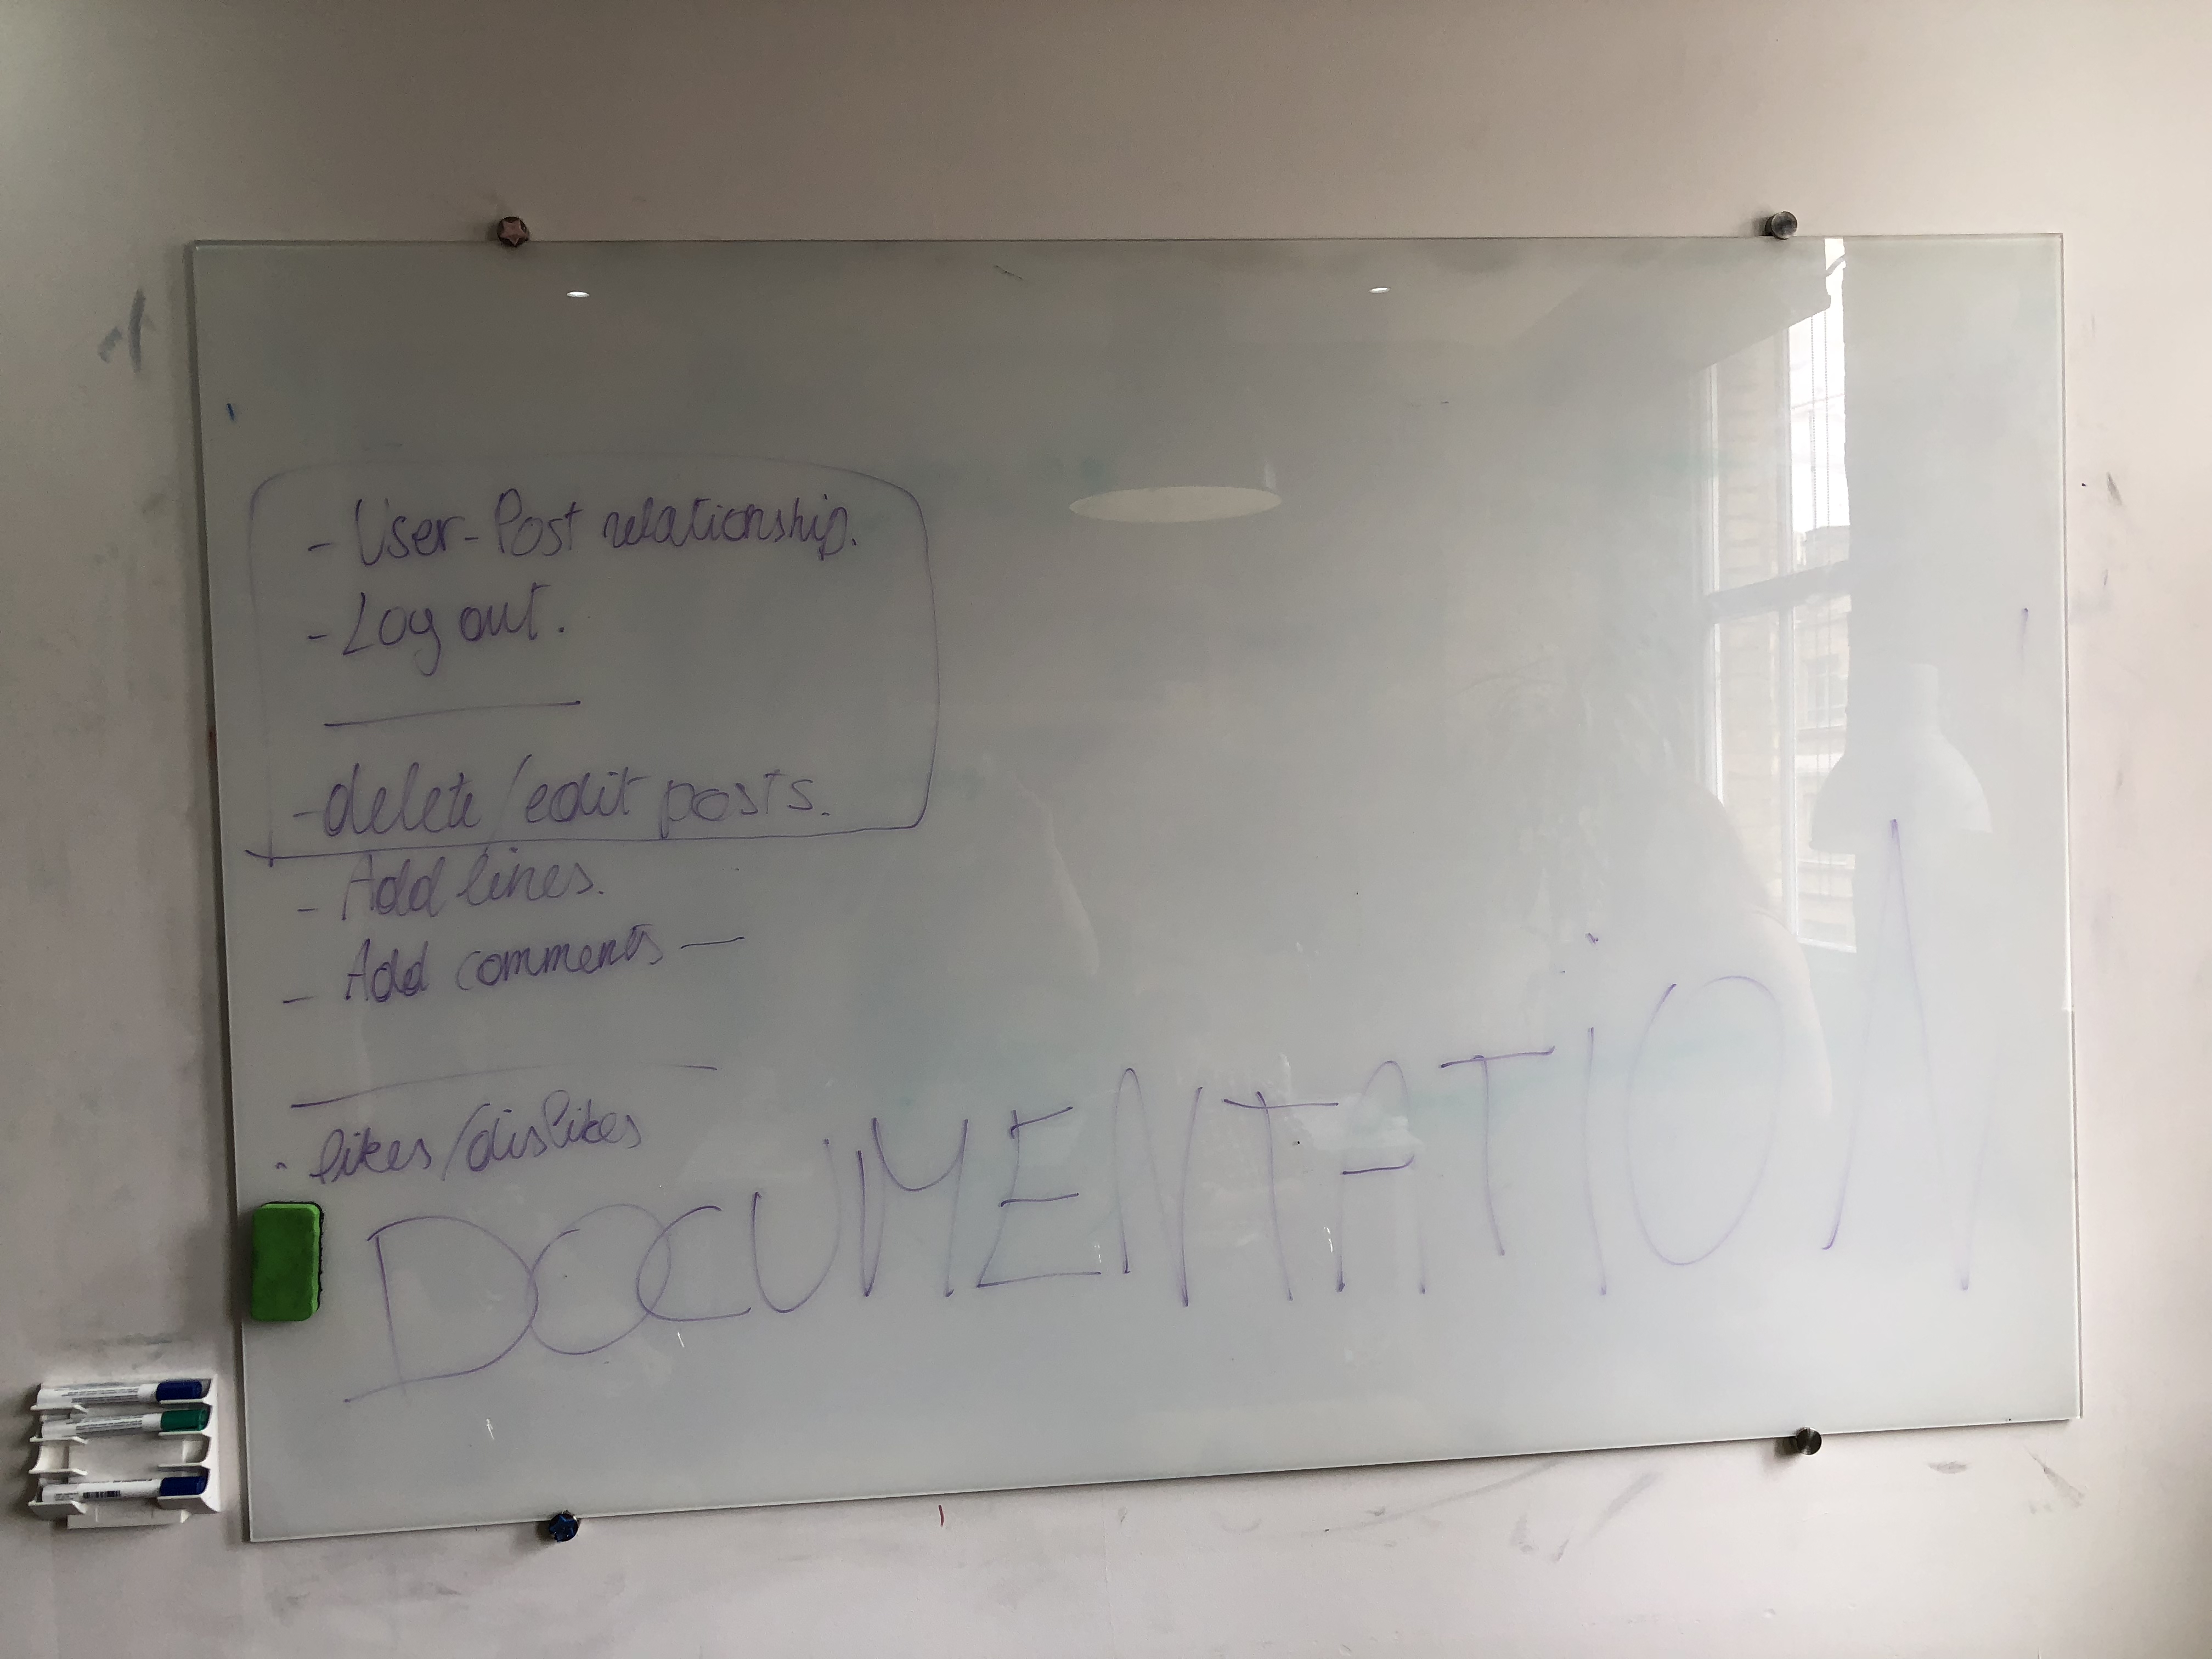 - User-Post relationship.
- Log out.
- delete/edit posts.
- Add lines.
- Add comments —
· likes/dislikes
DOCUMENTATION